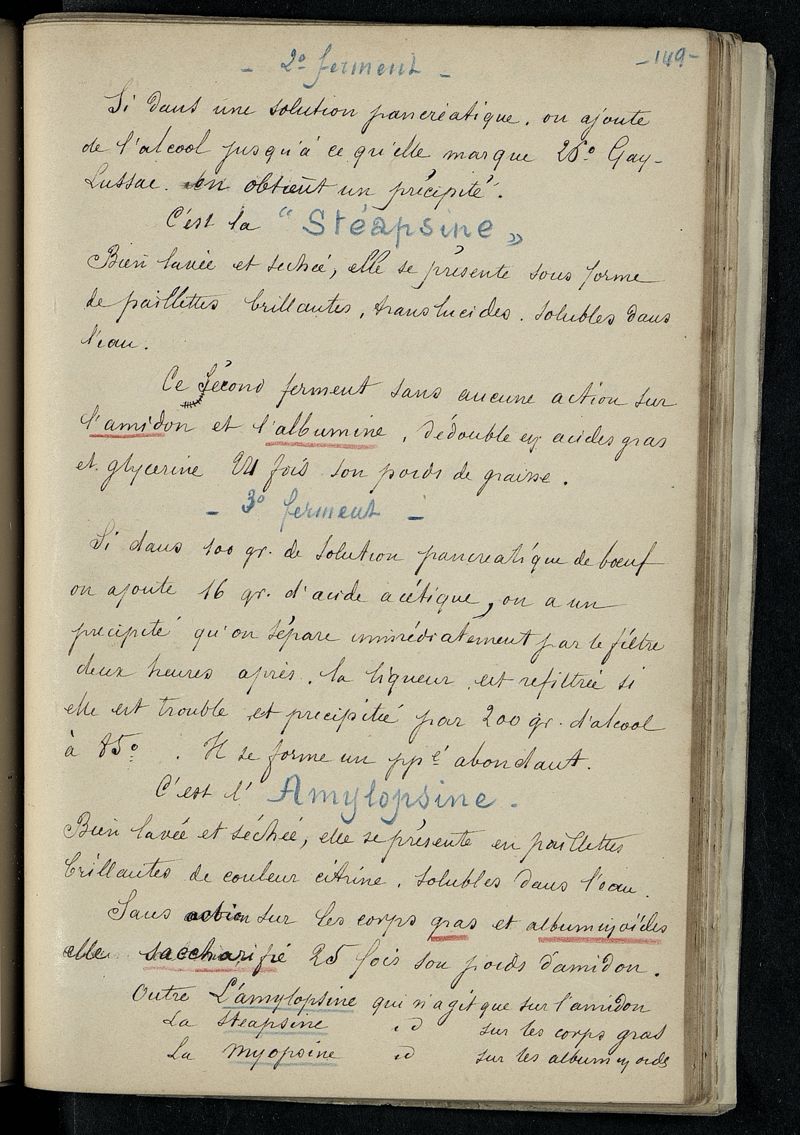 - 149 -
- 2º ferment -
Si dans une solution pancréatique. on ajoute
de l'alcool jusqu'à ce qu'elle marque 26º Gay-
Lussac. on obtient un précipité.
C'est la "Stéapsine"
Bien lavée et séchée, elle se présente sous forme
de paillettes brillantes, translucides. solubles dans
l'eau.
Ce second ferment sans aucune action sur
l'amidon et l'albumine, dédouble en acides gras
et glycerine 24 fois son poids de graisse.
- 3º ferment -
Si dans 100 gr. de solution pancreatique de bœuf
on ajoute 16 gr. d'acide acétique, on a un
precipité qu'on sépare immédiatement par le filtre
deux heures après. la liqueur est refiltrée si
elle est trouble et precipitée par 200 gr. d'alcool
à 85º. Il se forme un ppé abondant.
C'est l'Amylopsine.
Bien lavée et séchée, elle se présente en paillettes
brillantes de couleur citrine. solubles dans l'eau.
Sans action sur les corps gras et albuminoïdes
elle saccharifié 25 fois son poids d'amidon.
Outre L'amylopsine qui n'agit que sur l'amidon
La steapsine id sur les corps gras
La Myopsine id sur les albuminoids